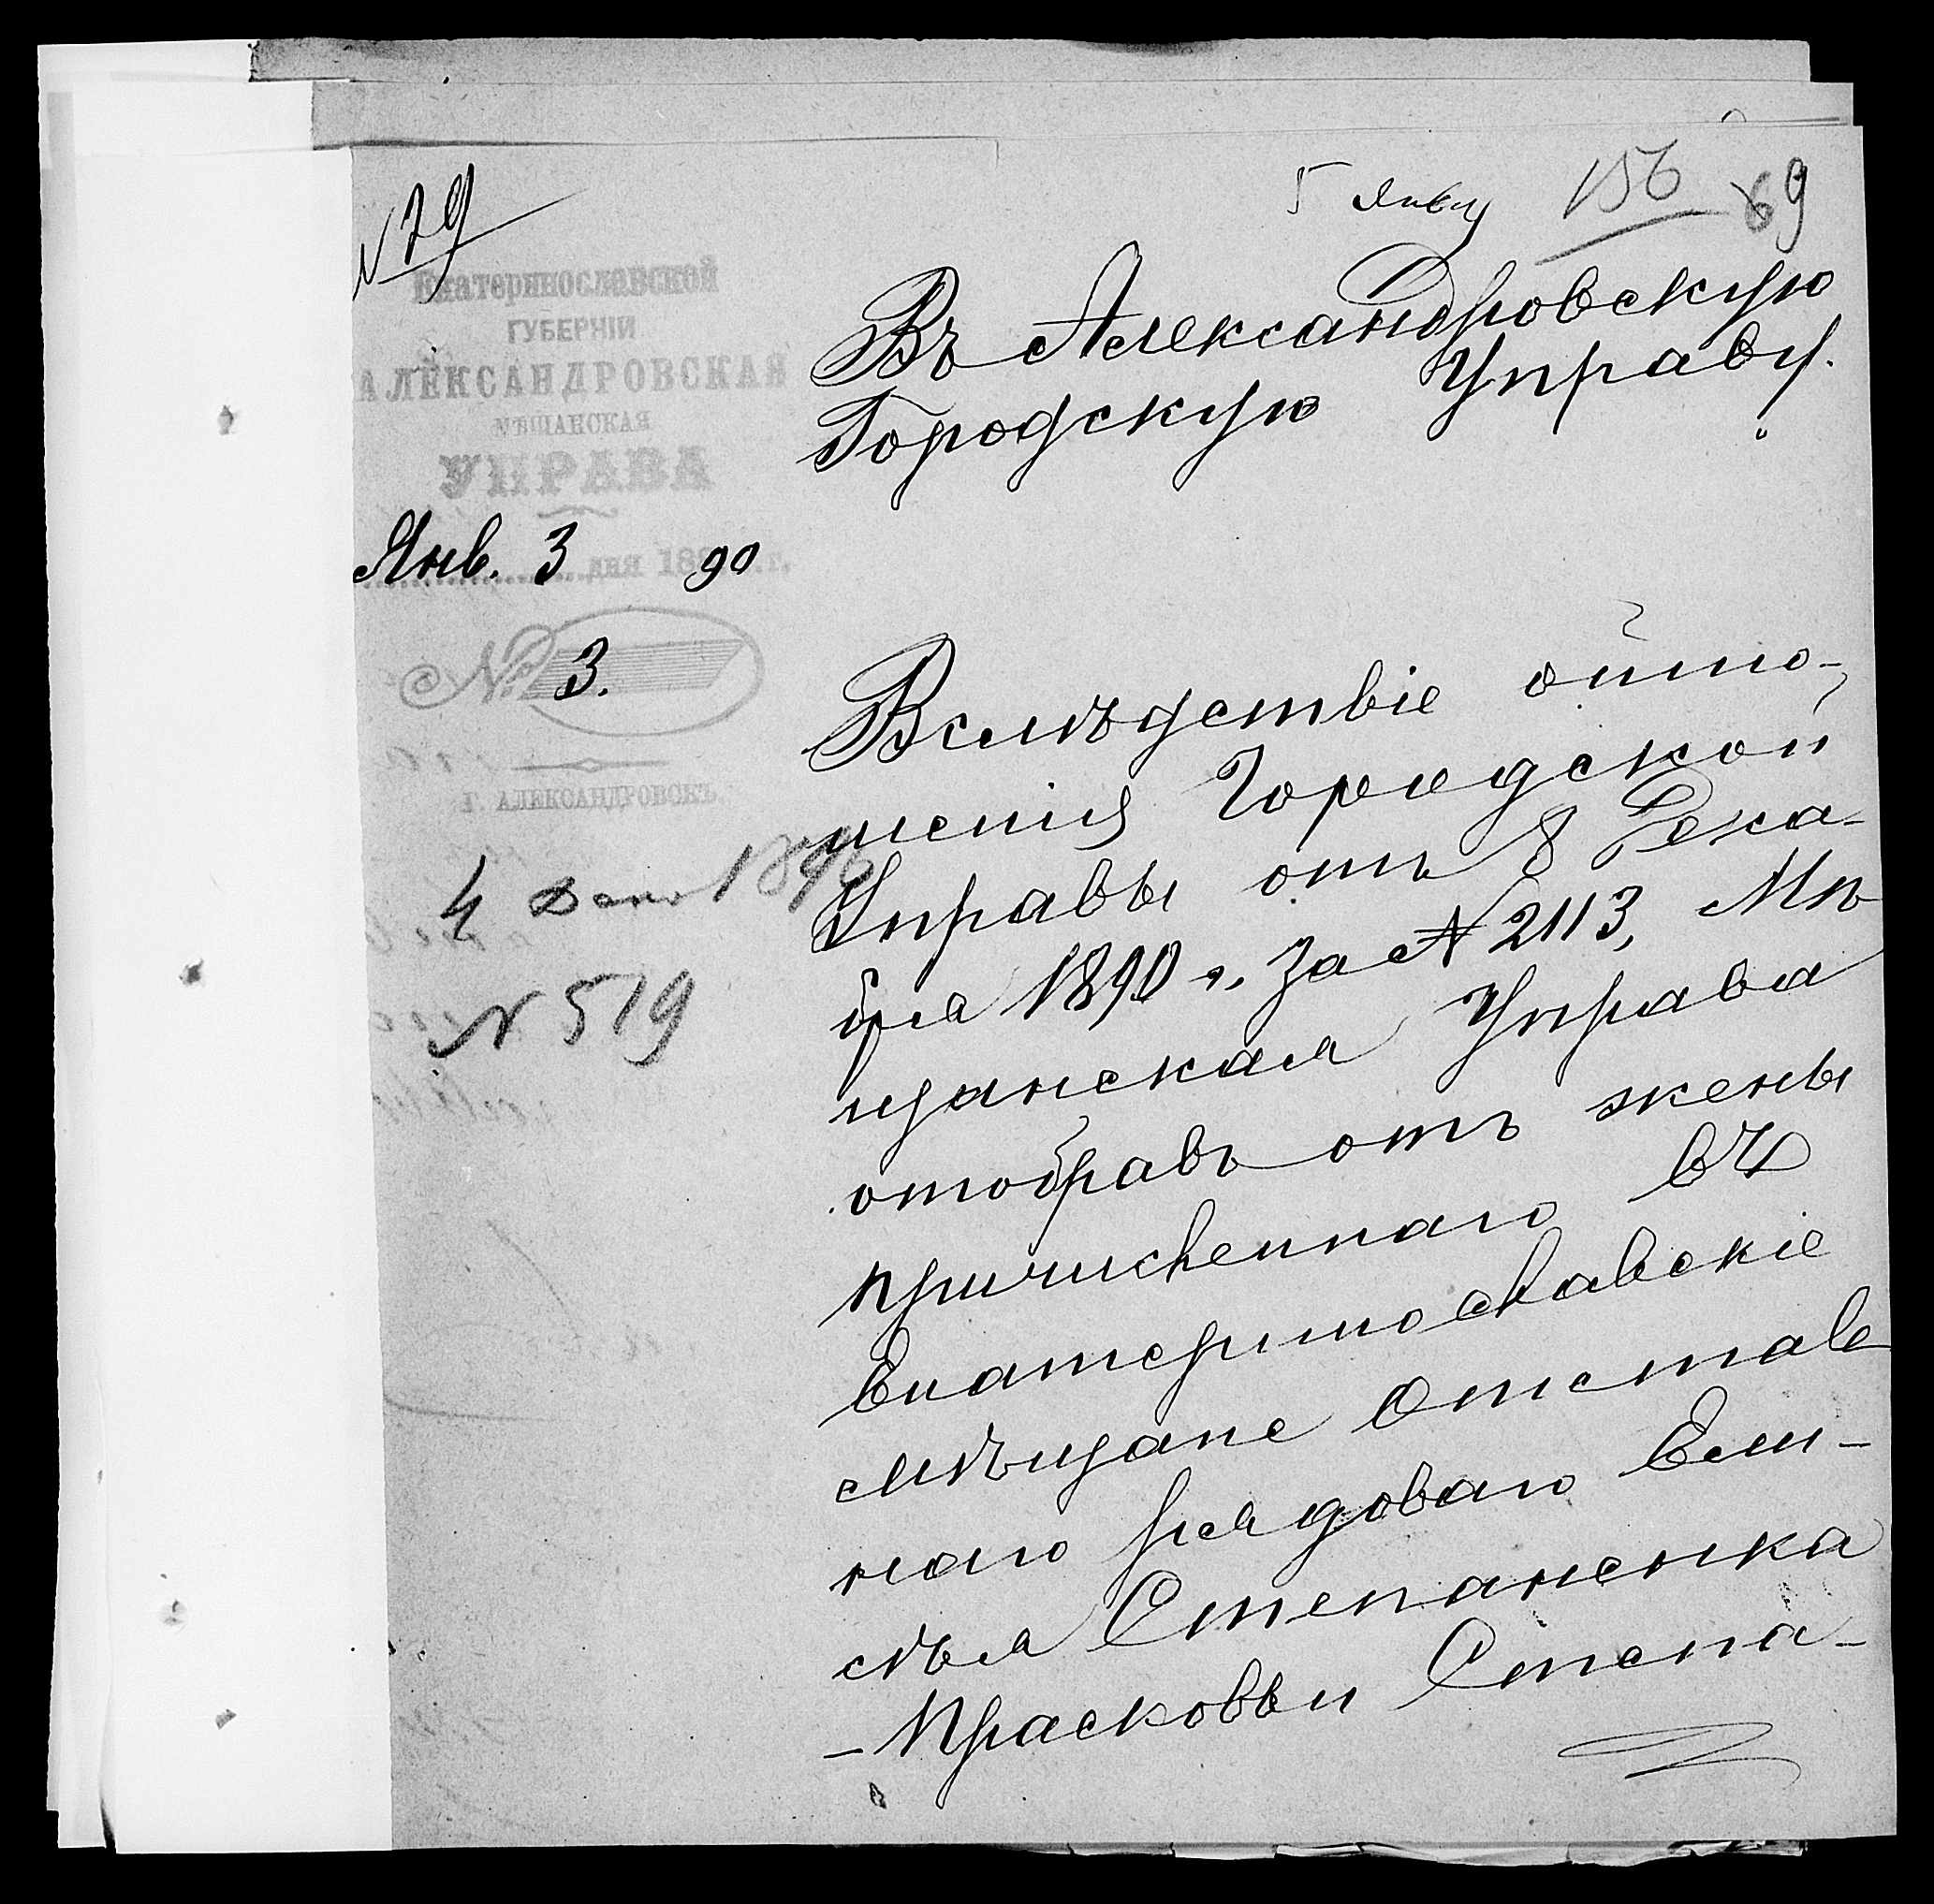 № 79
5 Янвр
156
69
Екатеринославской
ГУБЕРНІИ
АЛЕКСАНДРОВСКАЯ
МѢЩАНСКАЯ
УПРАВА
Янв. 3 дня 1890 г.
№ 3.
Г. АЛЕКСАНДРОВСКЪ.
4 Дек 1890
№ 519
Въ Александровскую
Городскую Управу.
Вслѣдствіе отно-
шенія Городской
Управы отъ 8 Дека-
бря 1890 г. за № 2113, Мѣ
щанская Управа
отобравъ отъ жены
причисленнаго въ
Екатеринославскіе
мѣщане Отстав
наго рядоваго Ели-
сѣя Степаненка
- Прасковьи Степа-